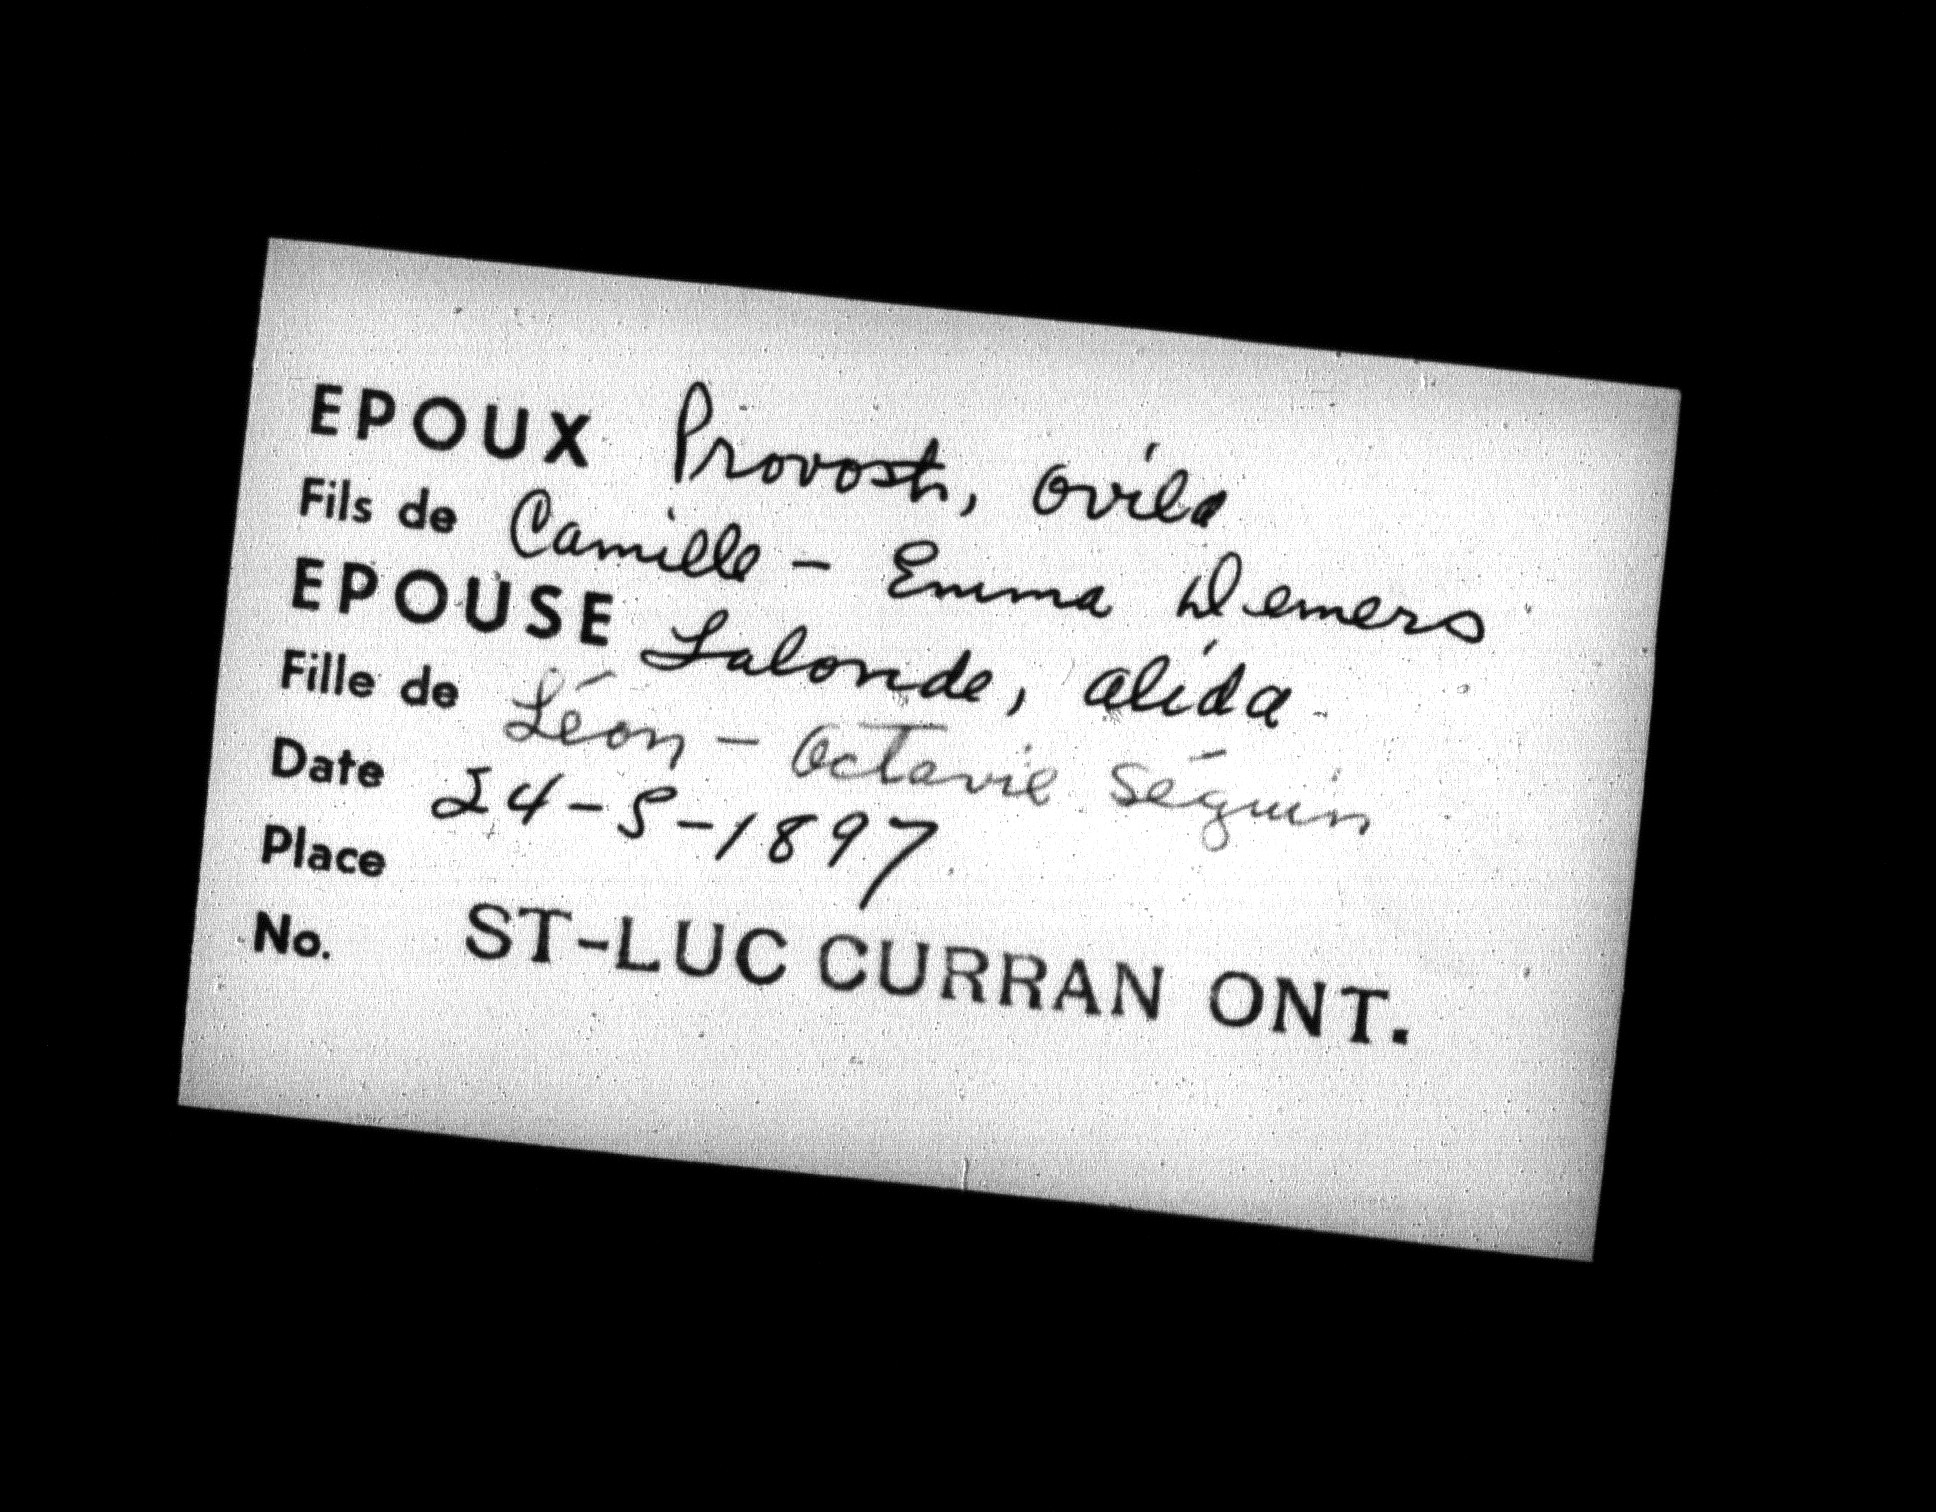 EPOUX Provost, Ovila
Fils de Camille - Emma Demers
EPOUSE Lalonde, Alida
Fille de Léon - Octavie Séguin
Date 24-5-1897
Place
No. ST-LUC CURRAN ONT.